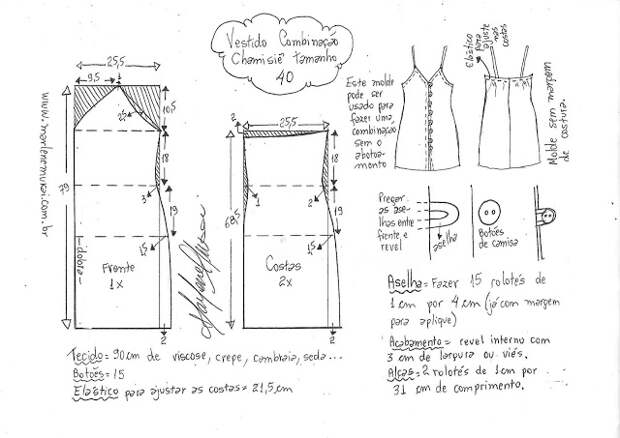 Vestido Combinação
Chamisiê tamanho
40
25,5
9,5
1
10,5
25
18
3
19
1,5
79
dobra
Frente
1x
2
www.marlenemukai.com.br
25,5
2
18
1
2
19
1,5
68,5
Costas
2x
2
Este molde
pode ser
usado para
fazer uma
combinação
sem o
abotoa-
mento
Elástico
para
ajuste
nas
costas
Molde sem margem
de costura.
Pregar
as ase-
lhas entre
frente e
revel
aselha
Botões
de camisa
Aselha= Fazer 15 rolotés de
1 cm por 4 cm (já com margem
para aplique)
Acabamento= revel interno com
3 cm de largura ou viés.
Alças= 2 rolotés de 1cm por
31 cm de comprimento.
Tecido= 90cm de viscose, crepe, cambraia, seda...
Botões= 15
Elástico para ajustar as costas= 21,5cm